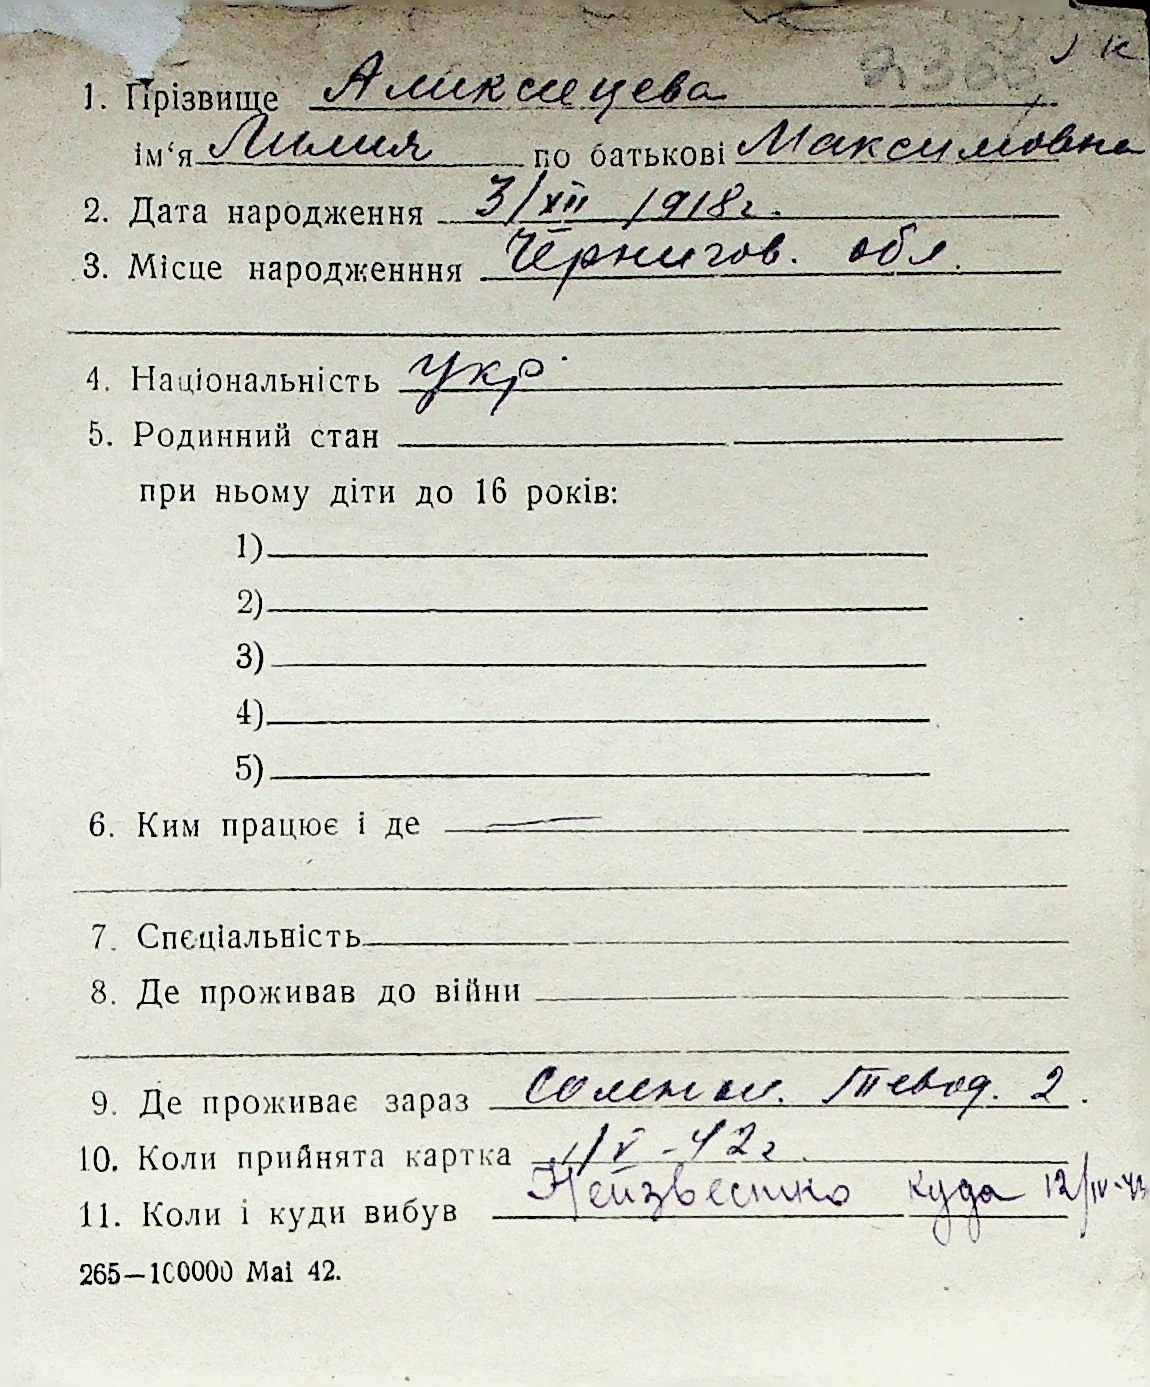 к
1. Прізвище Аликсейцева
ім‘я Лилия по батькові Максимовна
2. Дата народження 3/XII 1918г.
3. Місце народженння Чернигов. обл.
4. Національність Укр.
5. Родинний стан
при ньому діти до 16 років:
1)
2)
3)
4)
5)
6. Ким працює і де —
7. Спеціальність
8. Де проживав до війни
9. Де проживає зараз 2.
10. Коли прийнята картка 1/V-42г.
11. Коли і куди вибув Неизвестно куда 12/IV-43
265—100000 Mai 42.